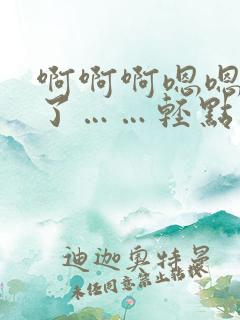 啊啊啊嗯嗯
了……輕點
迦迪奥特曼
未经同意禁止转撰